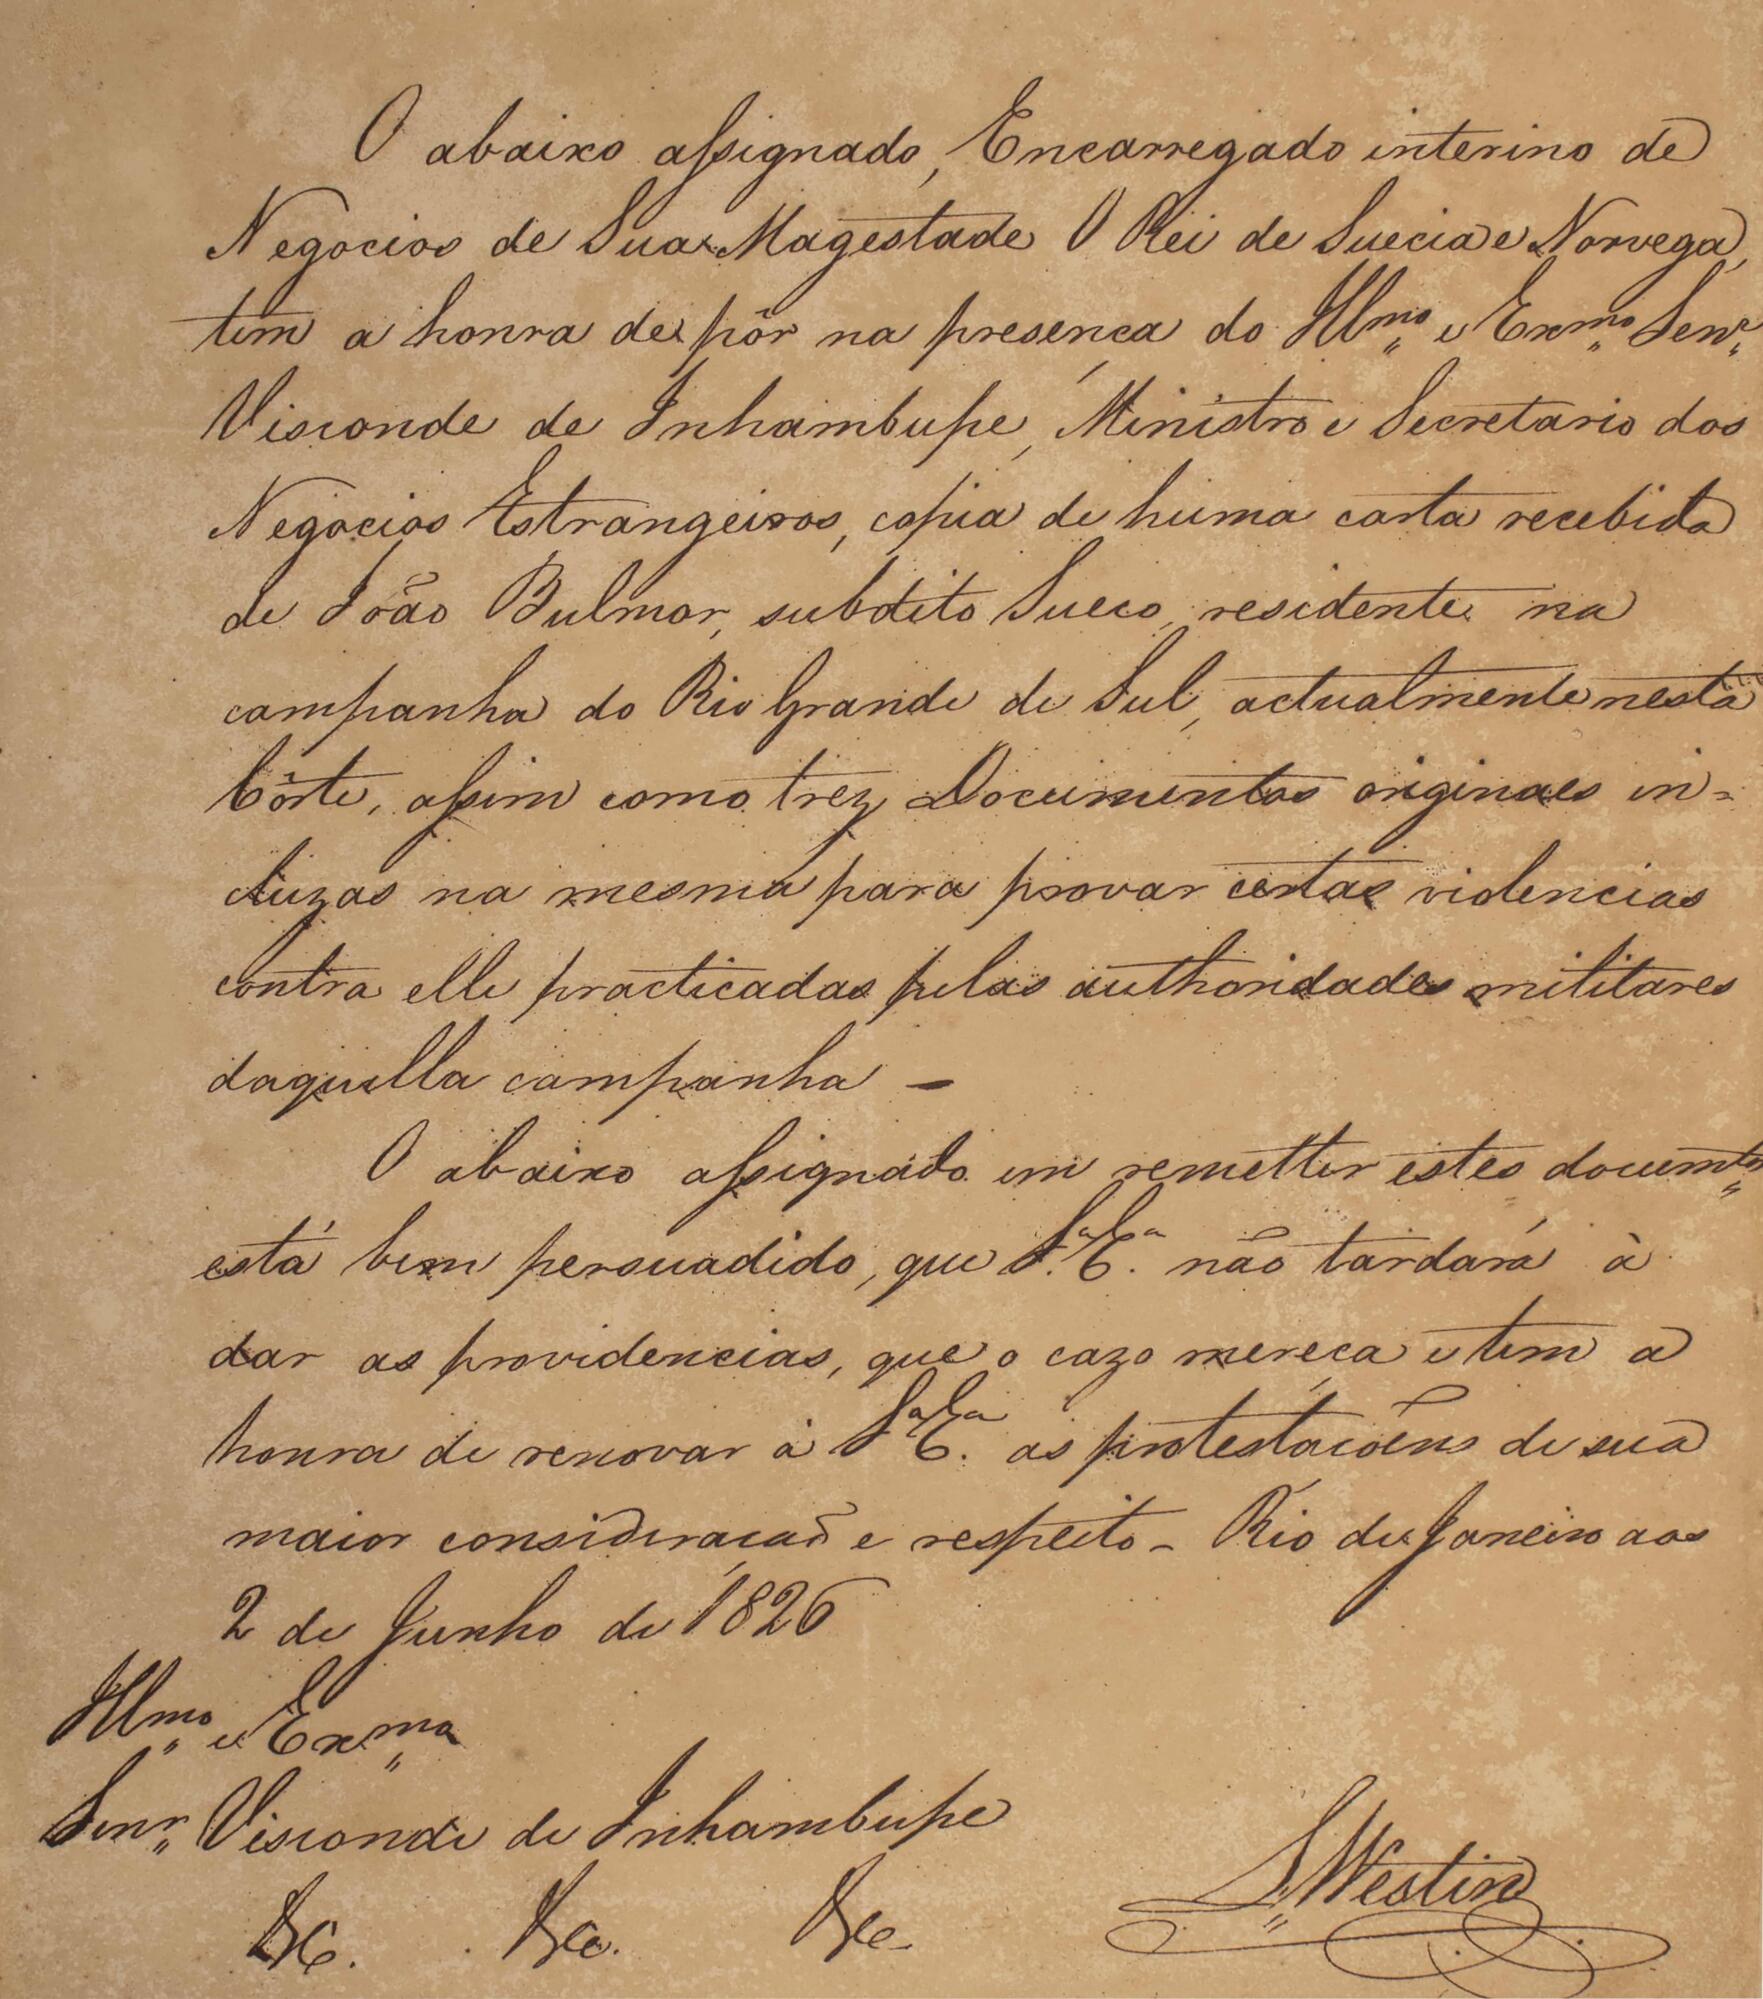 O abaixo assignado, Encarregado interino de
Negocios de Sua Magestade O Rei de Suecia e Norvega,
tem a honra de pôr na presença do Illmo e Exmo Senr
Visconde de Inhambupe, Ministro e Secretario dos
Negocios Estrangeiros, copia de huma carta recebida
de João Bulmar, subdito Sueco, residente na
campanha do Rio Grande de Sul, actualmente nesta
Côrte, assim como trez Documentos originaes in=
cluzas na mesma para provar certas violencias
contra elle practicadas pelas authoridades militares
daquella campanha —
O abaixo assignado em remetter estes documtos
está bem persuadido, que Sa. Ea. não tardará à
dar as providencias, que o cazo mereça e tem a
honra de renovar à Sa Ea. as protestaçoẽns de sua
maior consideração e respeito - Rio de Janeiro aos
2 de Junho de 1826
Illmo e Exmo
Senr Visconde de Inhambupe
&c. &c. &c.
L. Westin